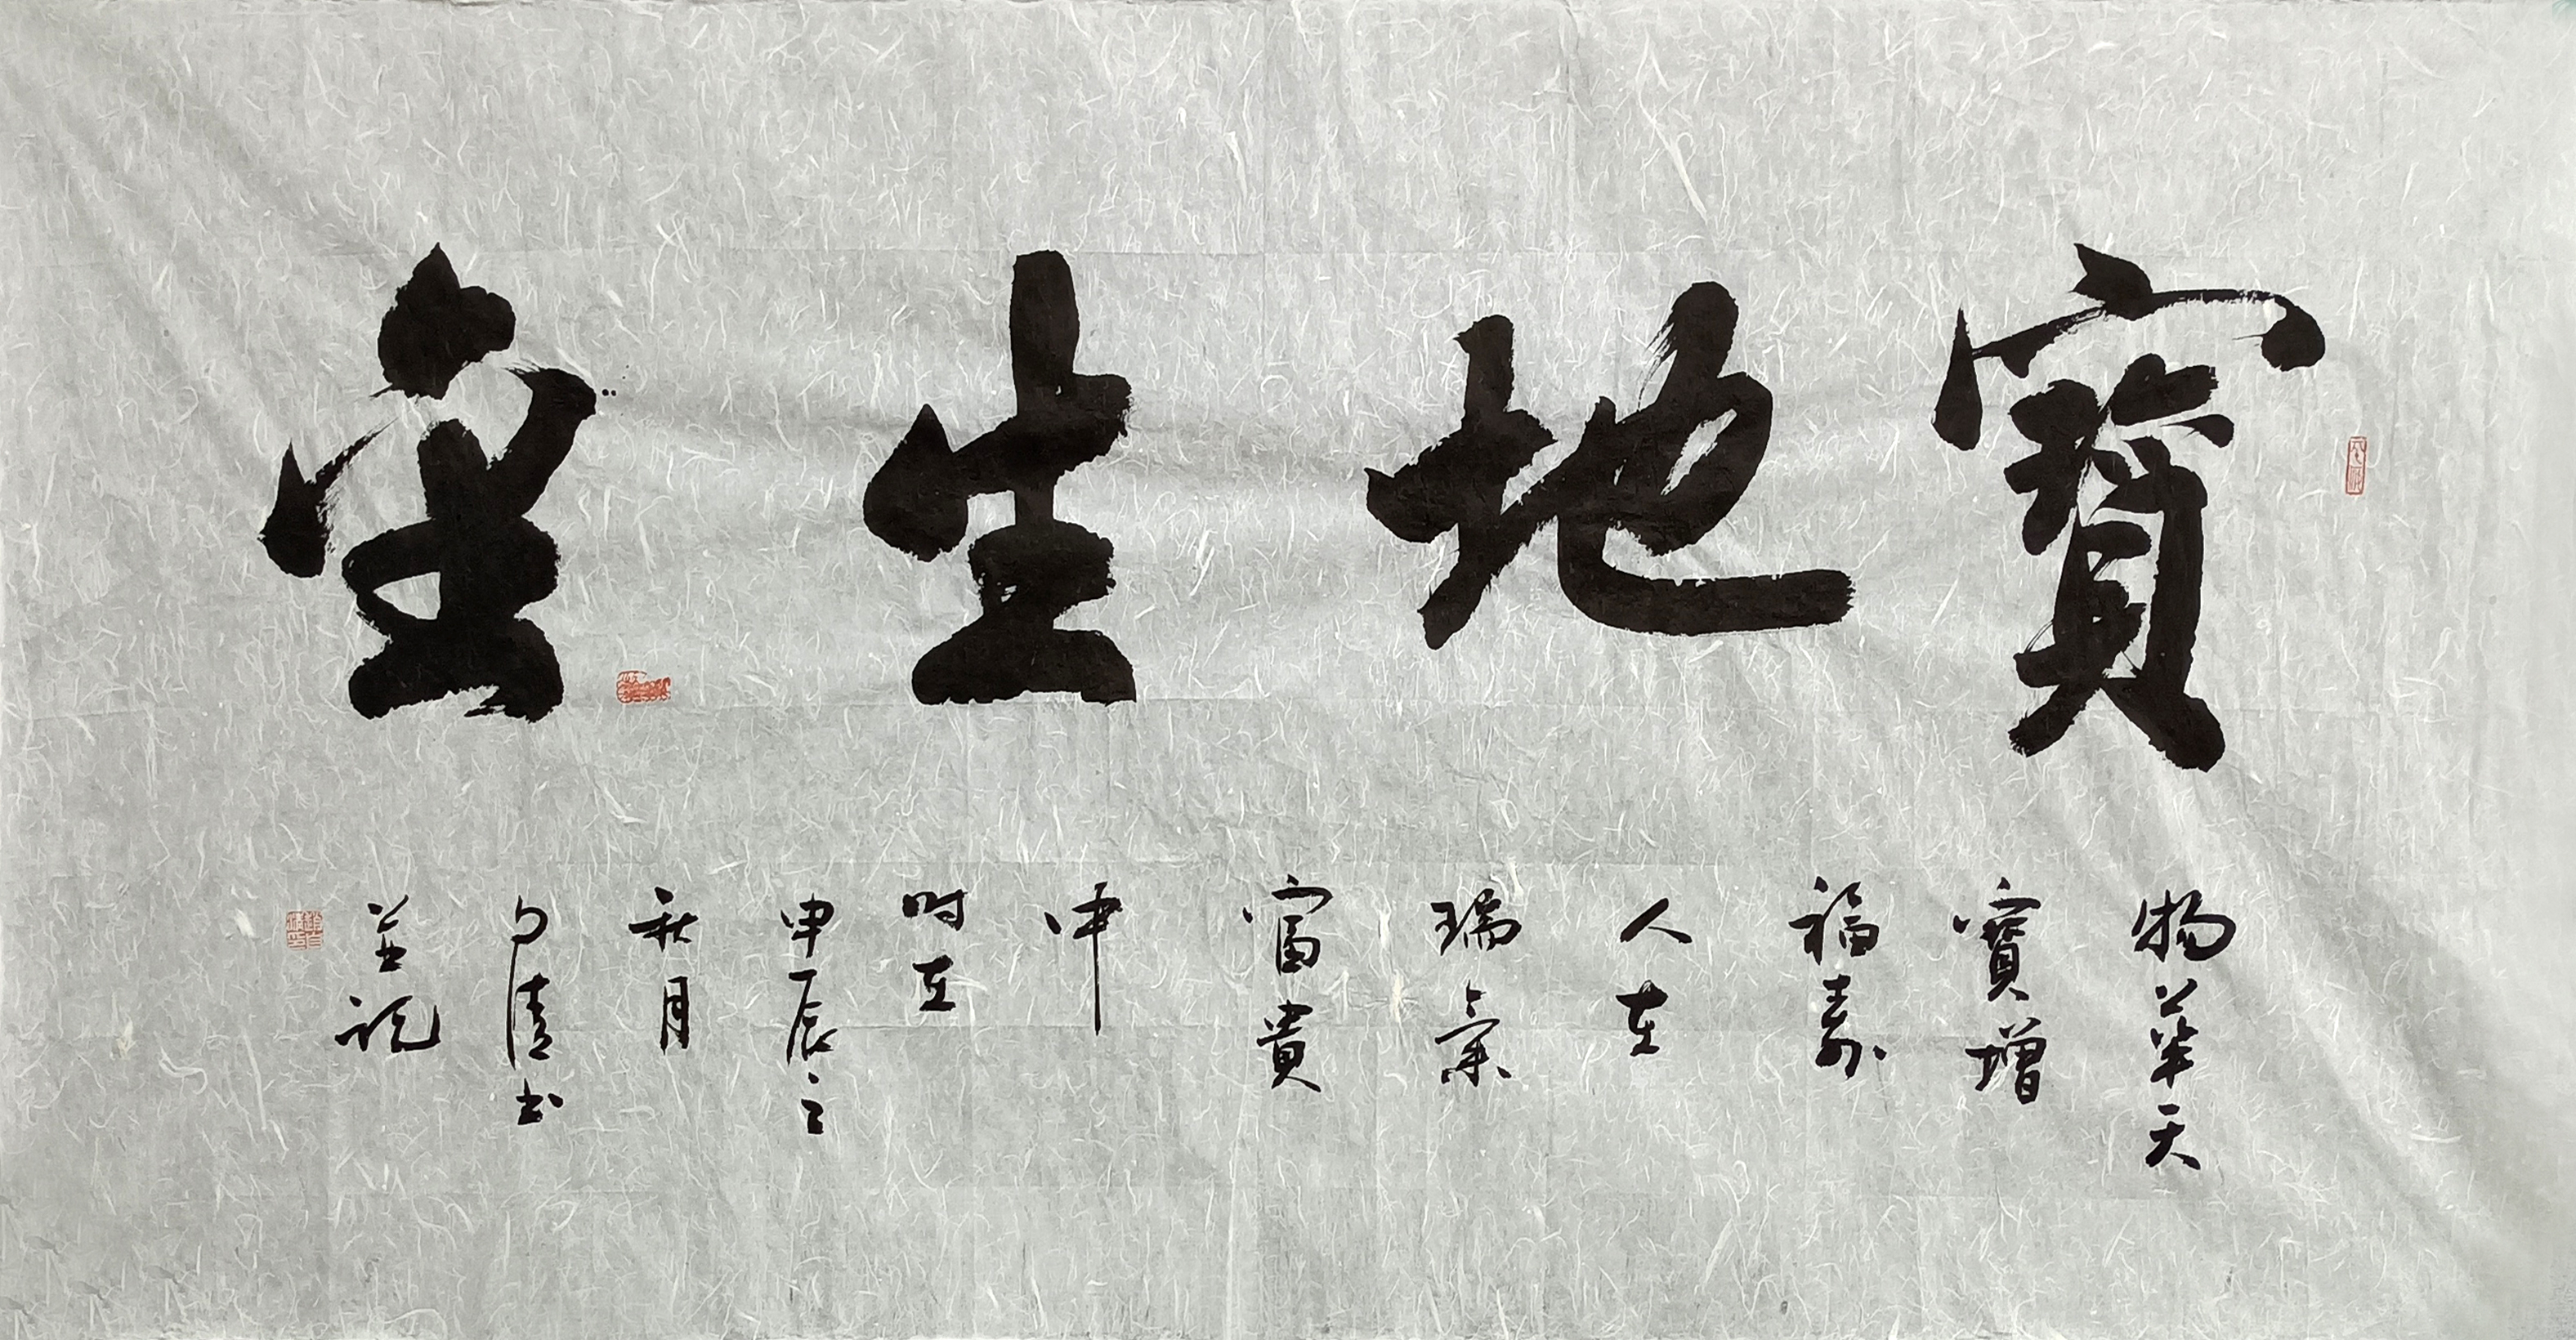 寶地生金
物華天
寶增
福壽
人在
瑞氣
富貴
中
时在
甲辰之
秋月
清书
並记